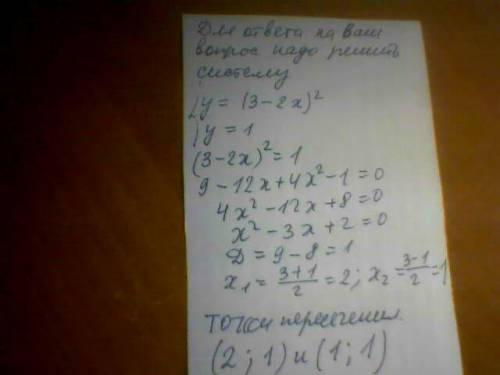 Для ответа на Ваш
вопрос надо решить
систему
{y = (3-2x)²
{y = 1
(3-2x)² = 1
9 - 12x + 4x² - 1 = 0
4x² - 12x + 8 = 0
x² - 3x + 2 = 0
D = 9 - 8 = 1
x₁ = (3+1)/2 = 2; x₂ = (3-1)/2 = 1
точки пересечения.
(2; 1) и (1; 1)